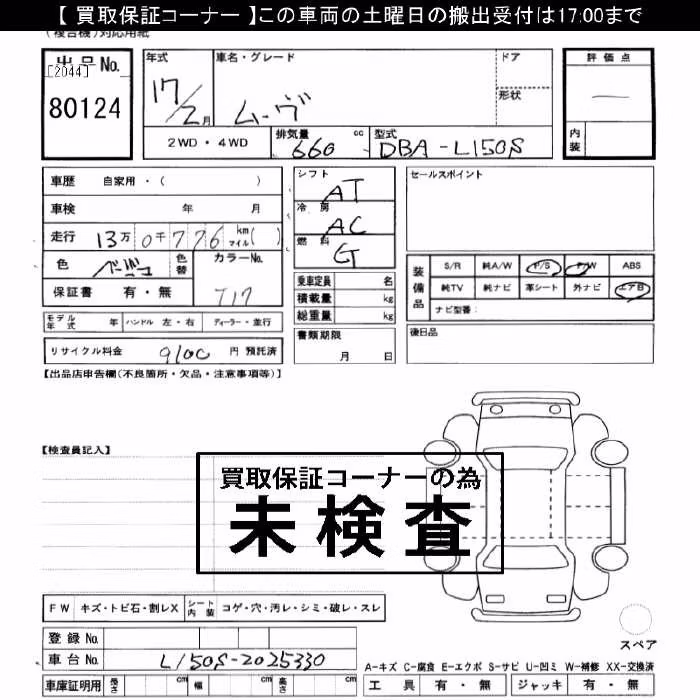 【 買取保証コーナー 】この車両の土曜日の搬出受付は17:00まで
(複合機)対応用紙
出品No.
[2044]
80124
年式 車名・グレード ドア
17/2月 ムーヴ 形状
2WD・4WD 排気量 660 cc 型式 DBA-L150S
評価点
内装
車歴 自家用・( )
車検 年 月
走行 13万0千776 km マイル( )
色 ベージュ 色替 カラーNo.
保証書 有・無 T17
モデル年式 年 ハンドル 左・右 ディーラー・並行
リサイクル料金 9100 円 預託済
シフト AT
冷房 AC
燃料 G
乗車定員 名
積載量 kg
総重量 kg
書類期限
月 日
セールスポイント
装備品 S/R 純A/W P/S P/W ABS
純TV 純ナビ 革シート 外ナビ エアB
ナビ型番:
後日品
【出品店申告欄(不良箇所・欠品・注意事項等)】
【検査員記入】
買取保証コーナーの為
未検査
FW キズ・トビ石・割レX シート内装 コゲ・穴・汚レ・シミ・破レ・スレ
登録No.
車台No. L150S-2025330
車庫証明用 長さ cm 幅 cm 高さ cm
スペア
A-キズ C-腐食 E-エクボ S-サビ U-凹ミ W-補修 XX-交換済
工具 有・無 ジャッキ 有・無